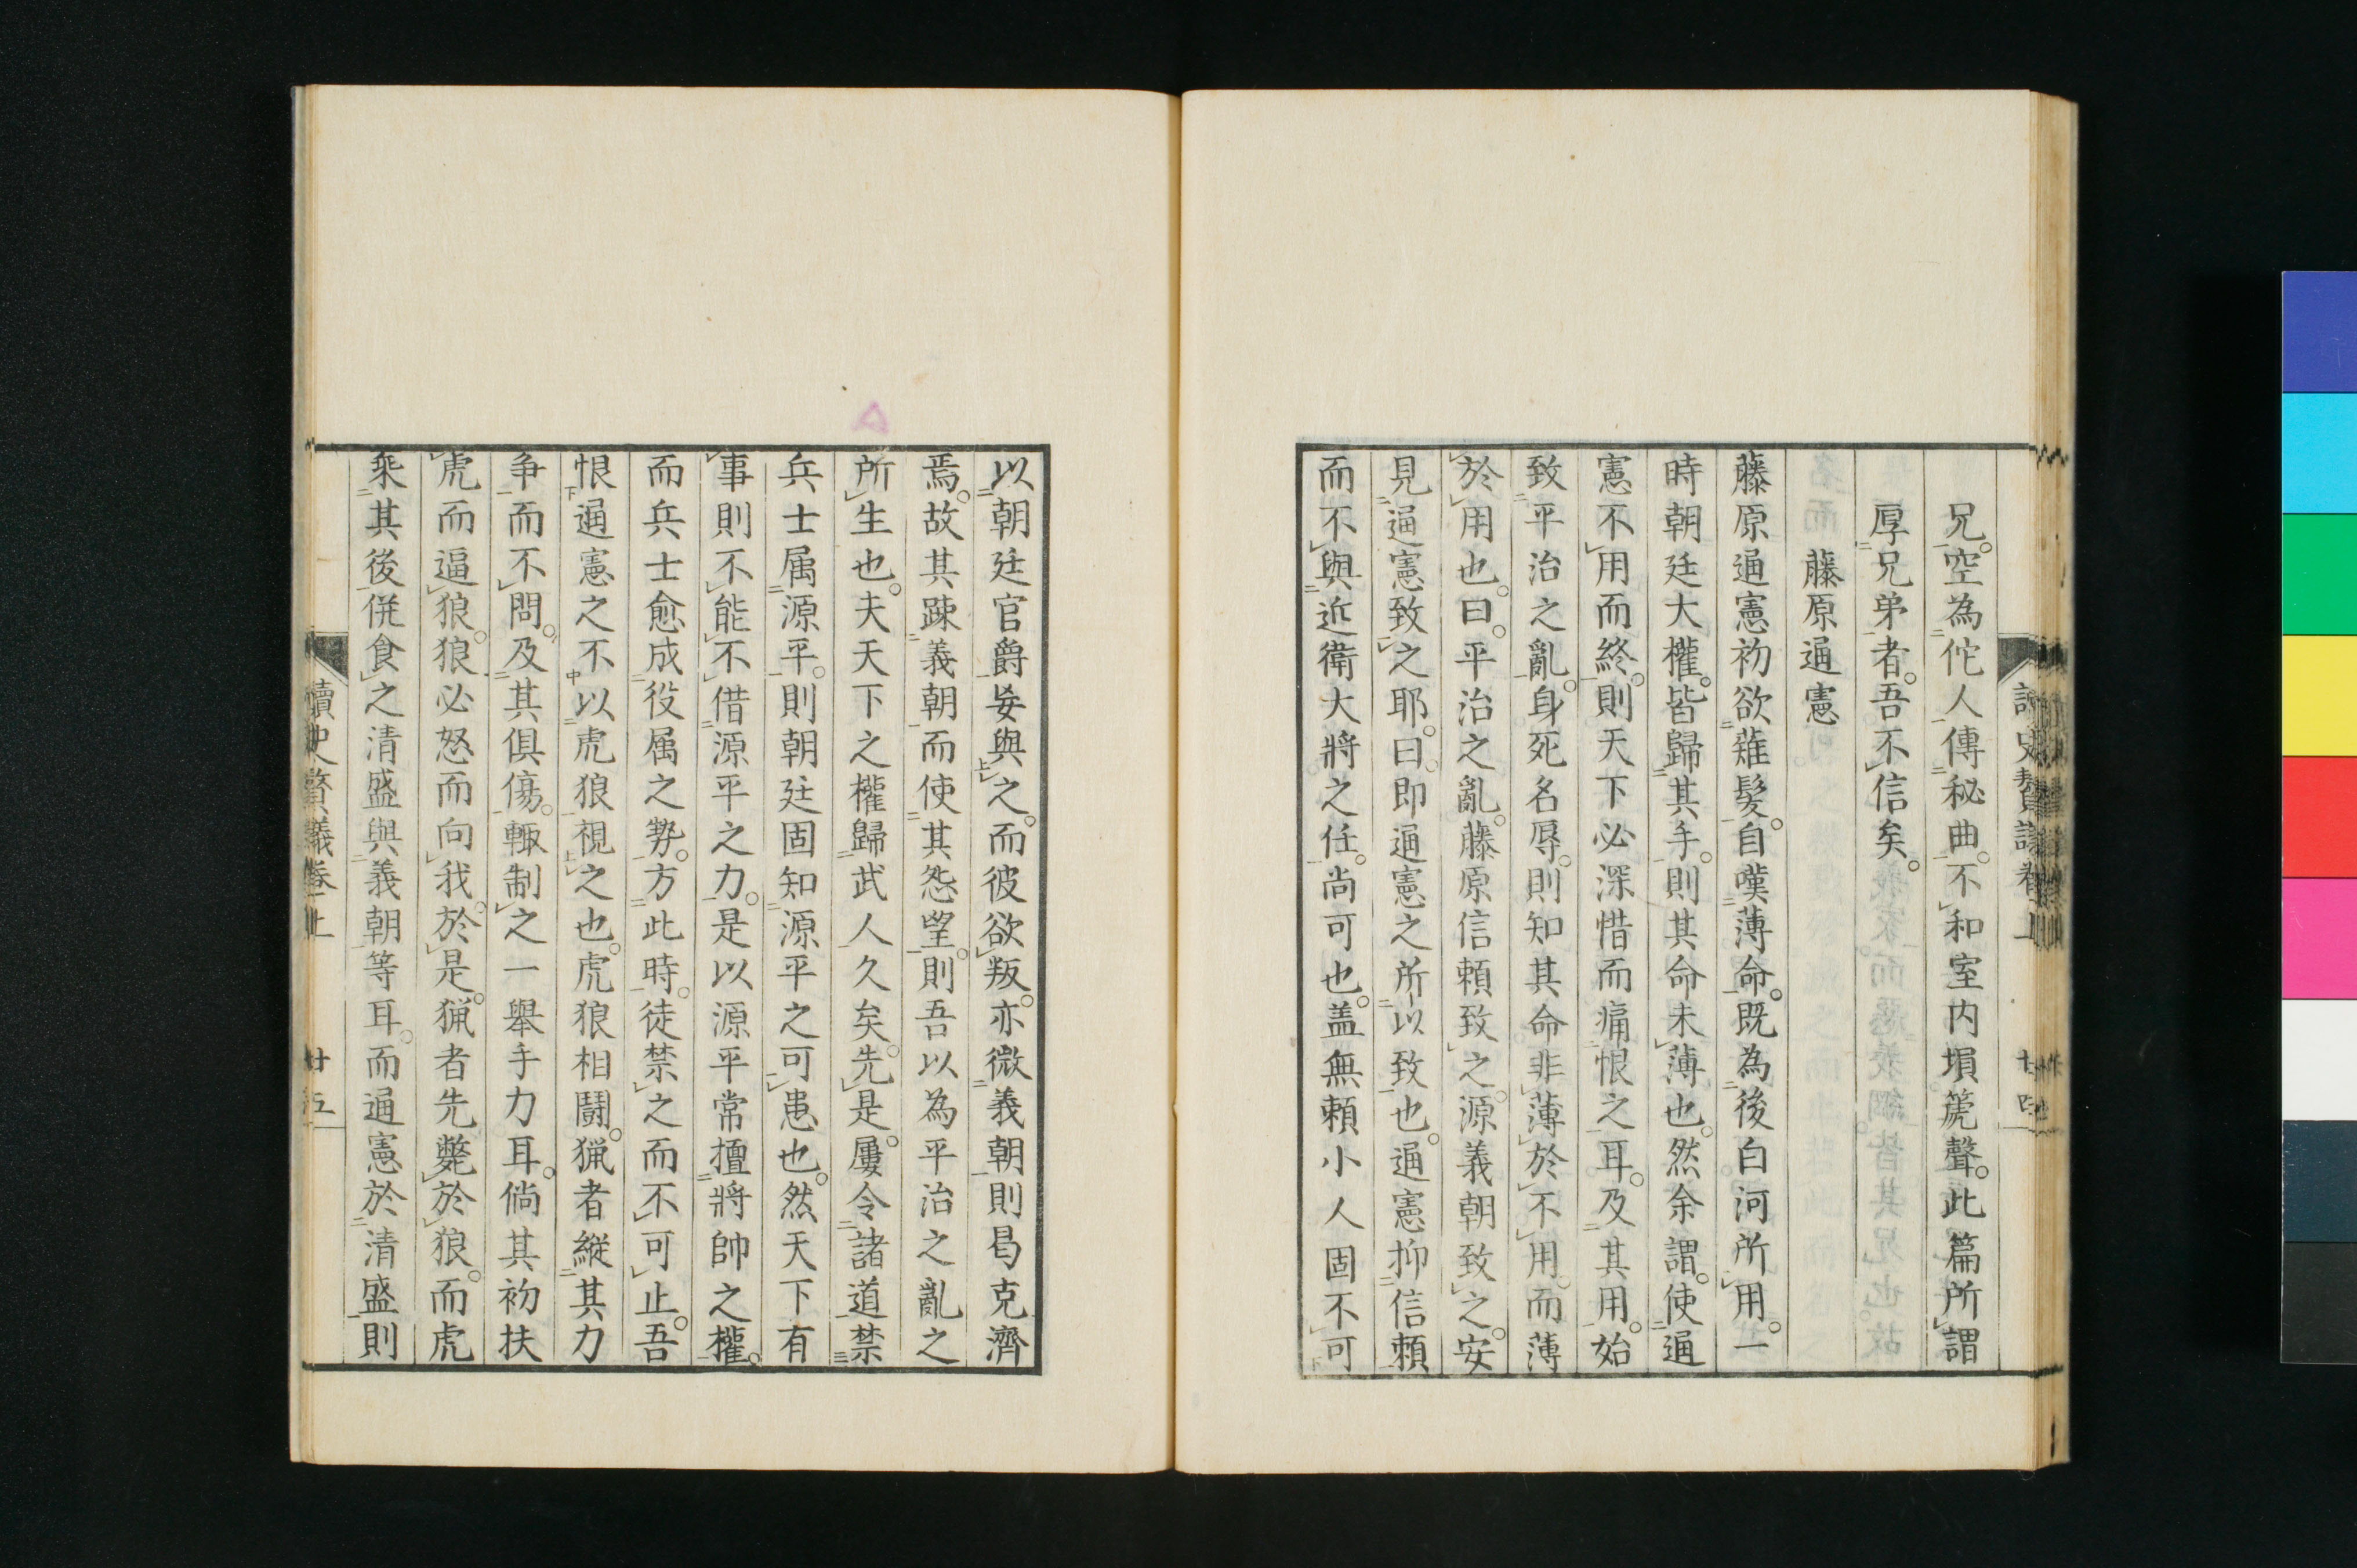 兄。空為佗人傳秘曲。不和室内塤箎聲。此篇所謂
厚兄弟者。吾不信矣。
藤原通憲
藤原通憲初欲薙髪。自嘆薄命。既為後白河所用。一
時朝廷大權。皆歸其手。則其命未薄也。然余謂。使通
憲不用而終。則天下必深惜而痛恨之耳。及其用。始
致平治之亂。身死名辱。則知其命非薄於不用。而薄
於用也。曰。平治之亂。藤原信頼致之。源義朝致之。安
見通憲致之耶。曰。即通憲之所以致也。通憲抑信頼
而不與近衛大將之任。尚可也。盖無頼小人固不可
以朝廷官爵妄與之。而彼欲叛。亦微義朝則曷克濟
焉。故其踈義朝而使其怨望。則吾以為平治之亂之
所生也。夫天下之權歸武人久矣。先是屢令諸道禁
兵士属源平。則朝廷固知源平之可患也。然天下有
事則不能不借源平之力。是以源平常擅將帥之權。
而兵士愈成役属之勢。方此時。徒禁之而不可止。吾
恨通憲之不以虎狼視之也。虎狼相鬪。猟者縱其力
争而不問。及其俱傷。輙制之一舉手力耳。倘其初扶
虎而逼狼。狼必怒而向我。於是。猟者先斃於狼。而虎
乘其後併食之清盛與義朝等耳。而通憲於清盛則
讀史贅議卷上
廿五